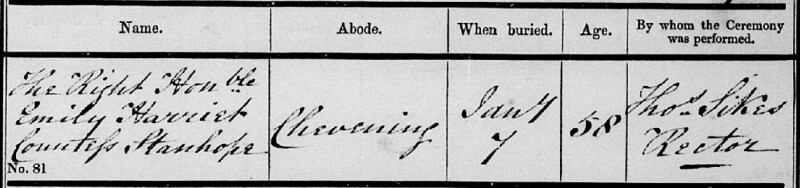 Name. Abode. When buried. Age. By whom the Ceremony was performed.
The Right Honble
Emily Harriet
Countess Stanhope
No. 81
Chevening
Jany
7
58
Thos Sikes
Rector